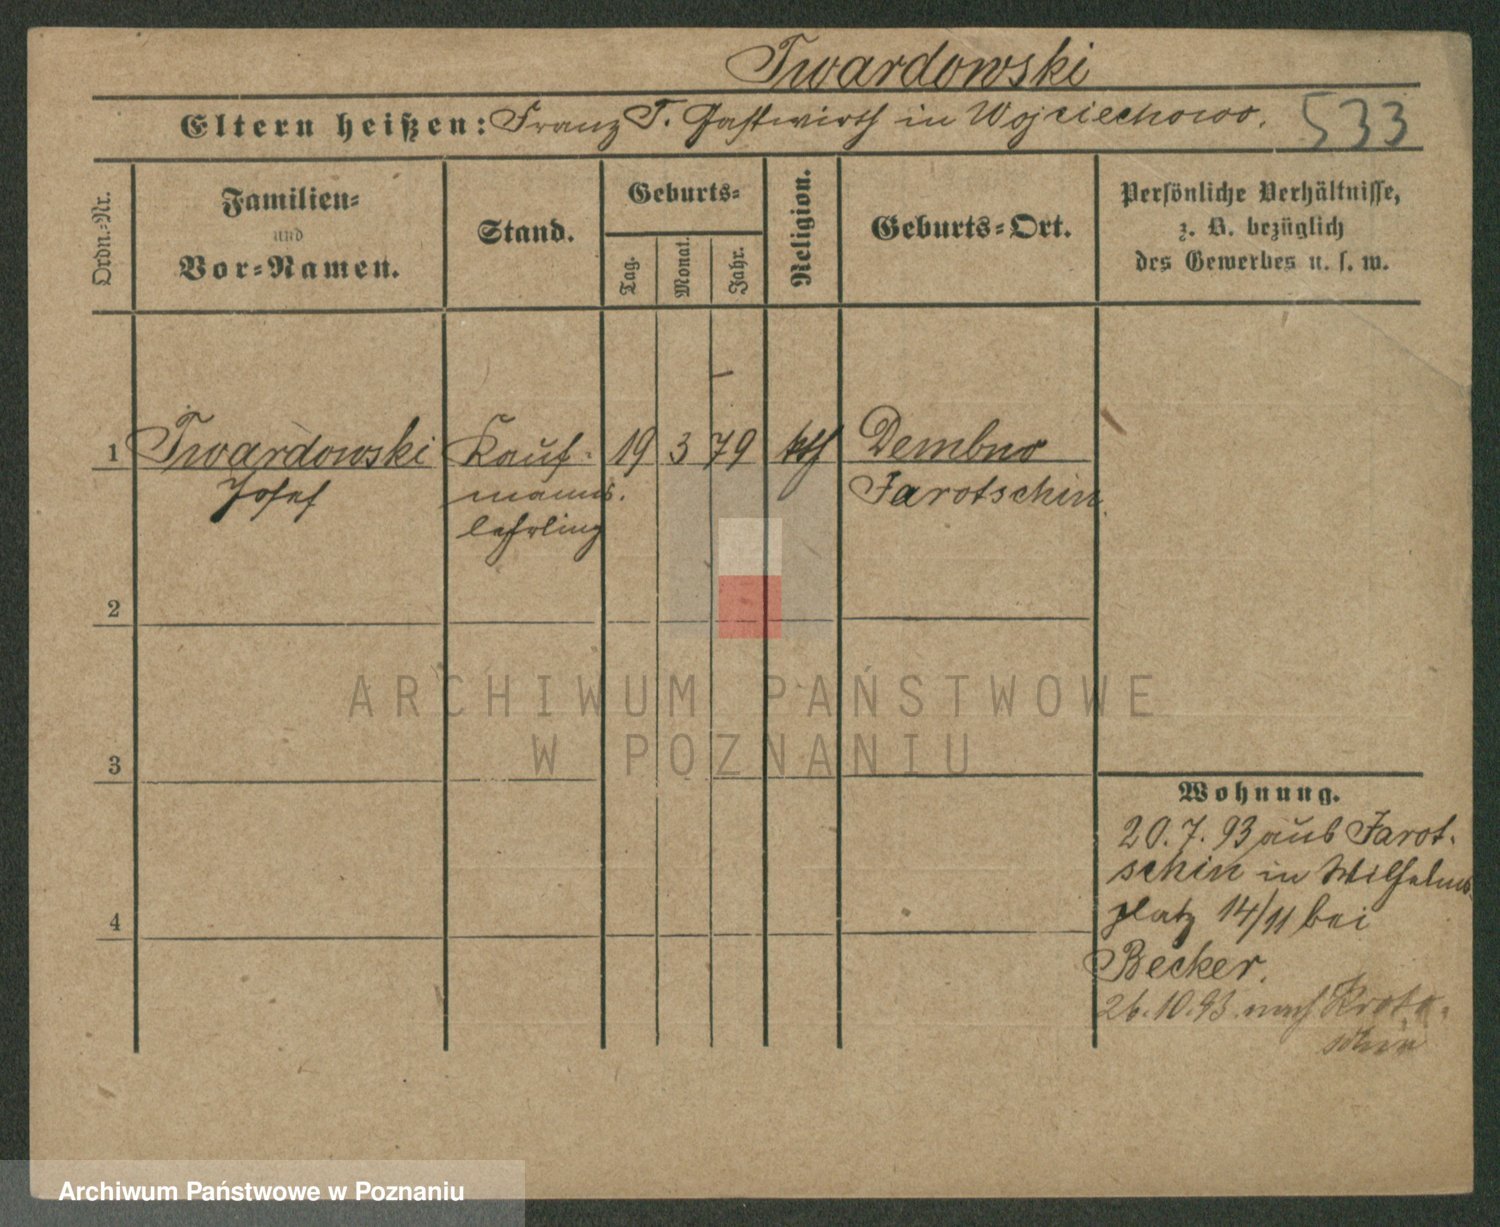 Twardowski
Eltern heißen: Franz T. Gastwirth in Wojciechowo. 533
Ordn.-Nr.
Familien-
und
Vor-Namen.
Stand.
Geburts-
Tag.
Monat.
Jahr.
Religion.
Geburts-Ort.
Persönliche Verhältnisse,
z. B. bezüglich
des Gewerbes u. s. w.
1 Twardowski Kauf- 19 3 79 kth Dembno
Josef manns. Jarotschin.
lehrling
2
3
4
Wohnung.
20.7.93 aus Jarot-
schin in Wilhelms
platz 14/11 bei
Becker.
26.10.93. nach Kroto-
schin
ARCHIWUM PAŃSTWOWE
W POZNANIU
Archiwum Państwowe w Poznaniu